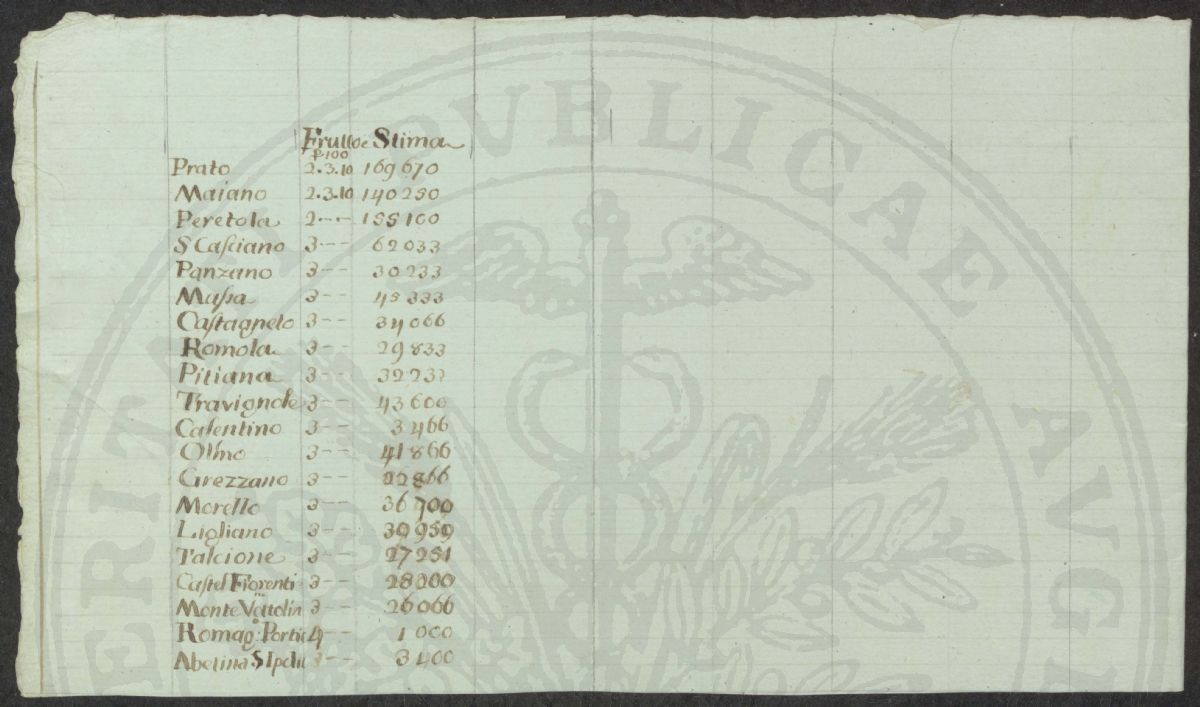 Frutto e Stima
p 100
Prato 2.3.10 169670
Maiano 2.3.10 140250
Peretola 2 - - 155100
S Casciano 3 - - 62033
Panzano 3 - - 30233
Massa 3 - - 45333
Castagneto 3 - - 34066
Romola 3 - - 29833
Pitiana 3 - - 32233
Travignole 3 - - 43600
Casentino 3 - - 3466
Olmo 3 - - 41866
Grezzano 3 - - 22866
Morello 3 - - 36700
Ligliano 3 - - 39959
Talcione 3 - - 27251
Castel Fiorenti 3 - - 28000
Monte Vettolin 3 - - 26066
Romag Portic 4 - - 1000
Abetina S Ipolit 3 - - 3400
PUBLICAE